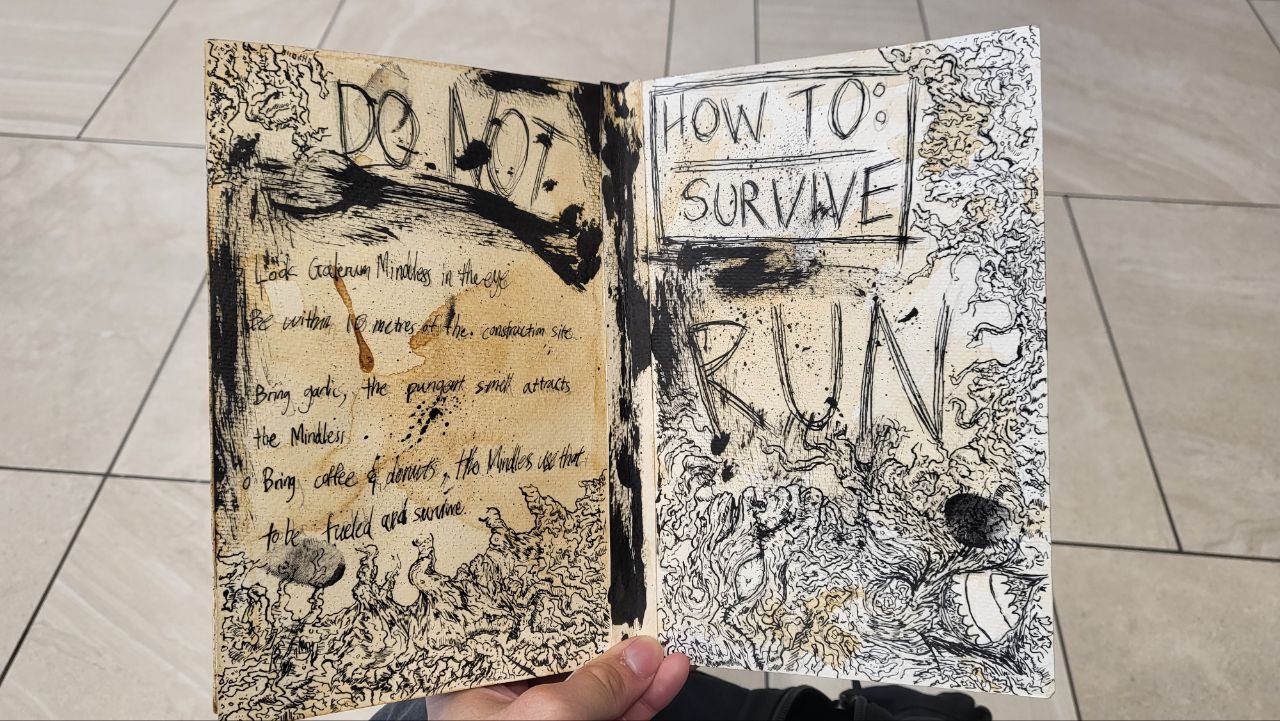 DO NOT
Look Galerum Mindless in the eye
Be within 10 metres of the construction site.
Bring garlic, the pungent smell attracts
the Mindless
Bring coffee & donuts, the Mindless use that
to be fueled and survive.
HOW TO:
SURVIVE
RUN